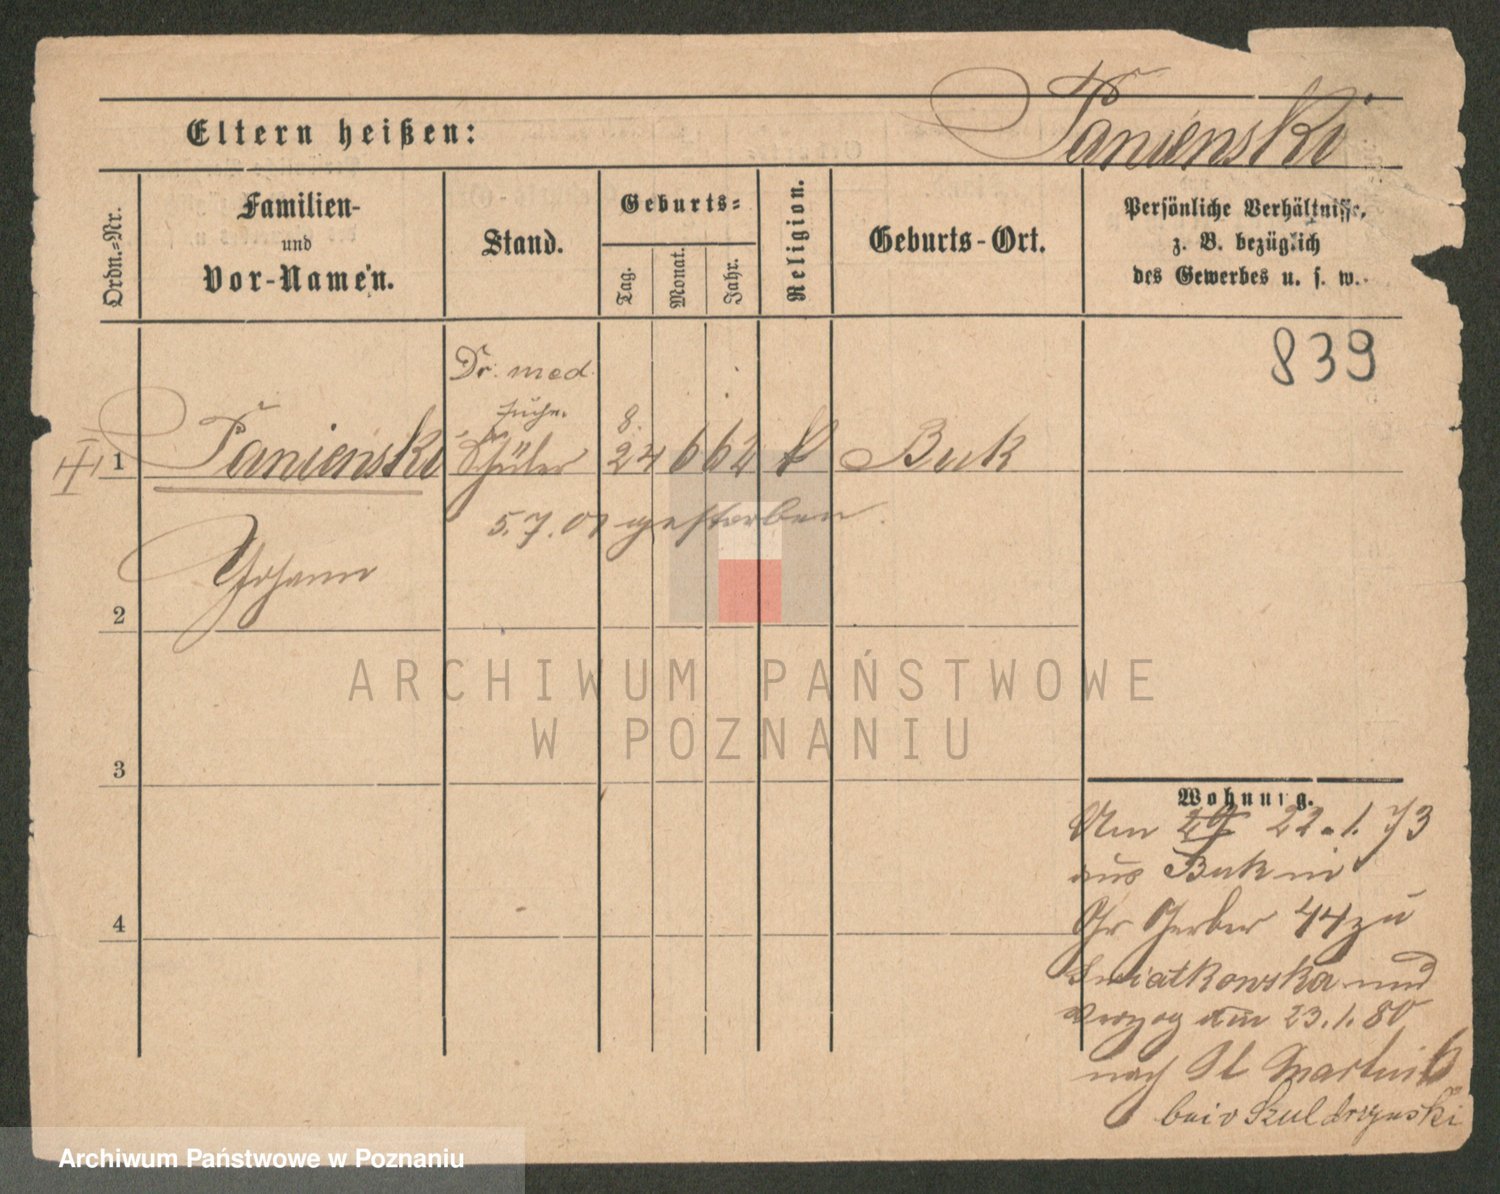 Panienski
Eltern heißen:
Ordn.-Nr.
Familien-
und
Vor-Namen.
Stand.
Geburts-
Tag.
Monat.
Jahr.
Religion.
Geburts-Ort.
Persönliche Verhältnisse,
z. B. bezüglich
des Gewerbes u. s. w.
839
Dr. med.
1 Panienski Schüler 24 6 62 Buk
8.
5.7.01 gestorben
Johann
2
3
4
Wohnung.
Am 22.1.73
aus Buk in
Gr Gerber 44 zu
Swiatkowska und
verzog am 23.1.80
nach St Martin 6
bei v Szuldrzynski
ARCHIWUM PAŃSTWOWE
W POZNANIU
Archiwum Państwowe w Poznaniu